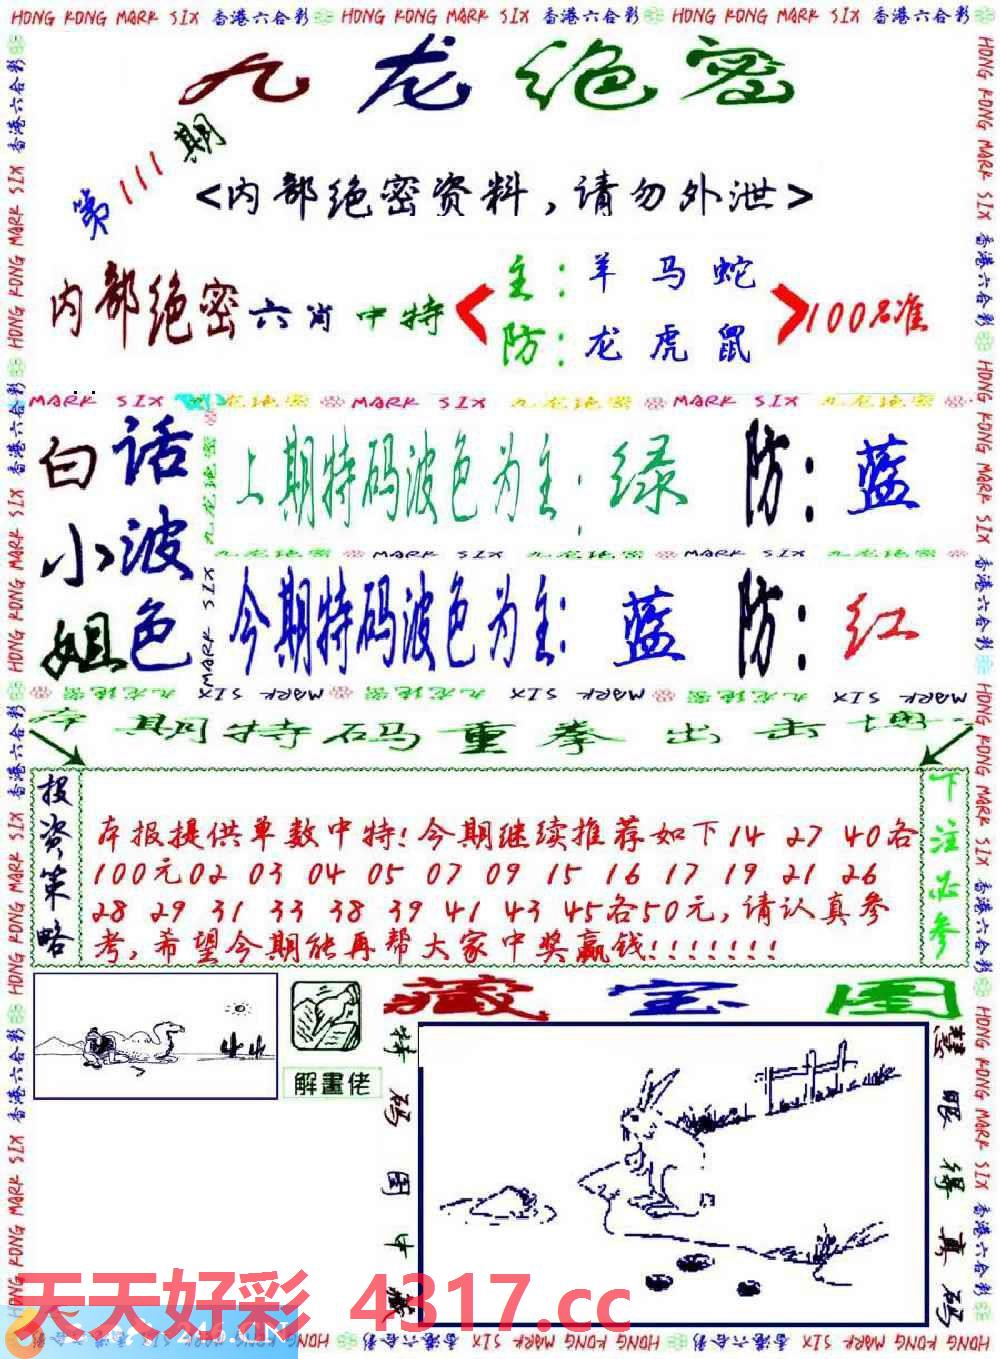 HONG KONG MARK SIX 香港六合彩 HONG KONG MARK SIX 香港六合彩 HONG KONG MARK SIX 香港六合彩
九龙绝密
第111期
<内部绝密资料,请勿外泄>
内部绝密六肖中特
主:羊 马 蛇
防:龙 虎 鼠
100%准
MARK SIX 九龙绝密 MARK SIX 九龙绝密 MARK SIX 九龙绝密
白小姐
话波色
上期特码波色为主:绿 防:蓝
九龙绝密 MARK SIX 九龙绝密 MARK SIX 九龙绝密
今期特码波色为主:蓝 防:红
MARK SIX 九龙绝密 MARK SIX 九龙绝密 MARK SIX
本期特码重拳出击
投资策略
本报提供单数中特!今期继续推荐如下14 27 40各
100元02 03 04 05 07 09 15 16 17 19 21 26
28 29 31 33 38 39 41 43 45各50元,请认真参
考,希望今期能再帮大家中奖赢钱!!!!!!!
下注必参
解畫佬
藏宝图
特码图中藏
慧眼得真码
天天好彩 4317.cc
HONG KONG MARK SIX 香港六合彩 HONG KONG MARK SIX 香港六合彩